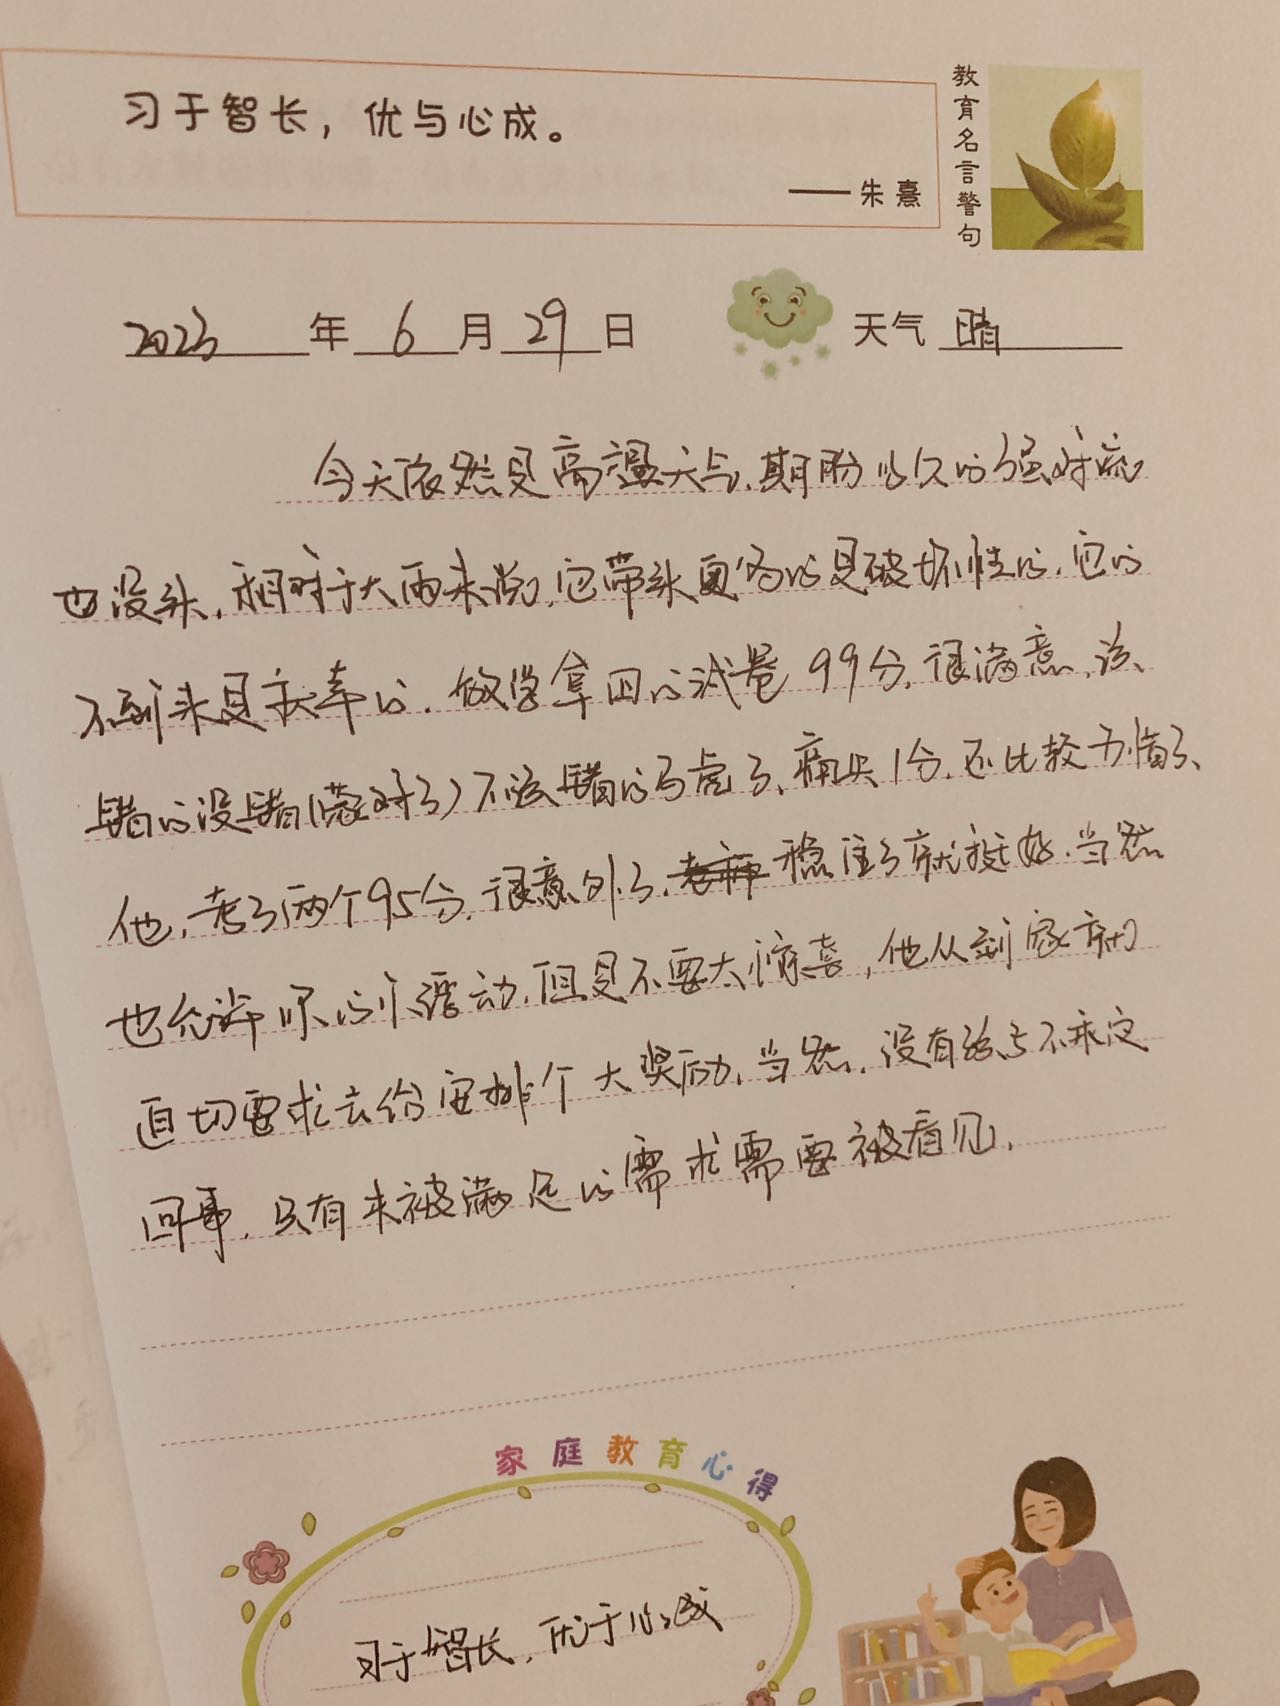 习于智长，优与心成。
——朱熹
教育名言警句
2023年6月29日 天气 晴
今天依然是高温天气，期盼已久的强对流
也没来，相对于大雨来说，它带来更多的是破坏性的，它的
不到来是庆幸的，数学拿回的试卷99分，很满意，该
错的没错（蒙对了）不该错的马虎了，痛失1分，还比较可惜了，
他，考了两个95分，很意外了，稳住了就挺好，当然
也允许的个浮动，但是不要太惊喜，他从到家就
直切要求去给安排个大奖励，当然，没有给与不承定
回事，只有未被满足的需求需要被看见，
家庭教育心得
习于智长，优于心成